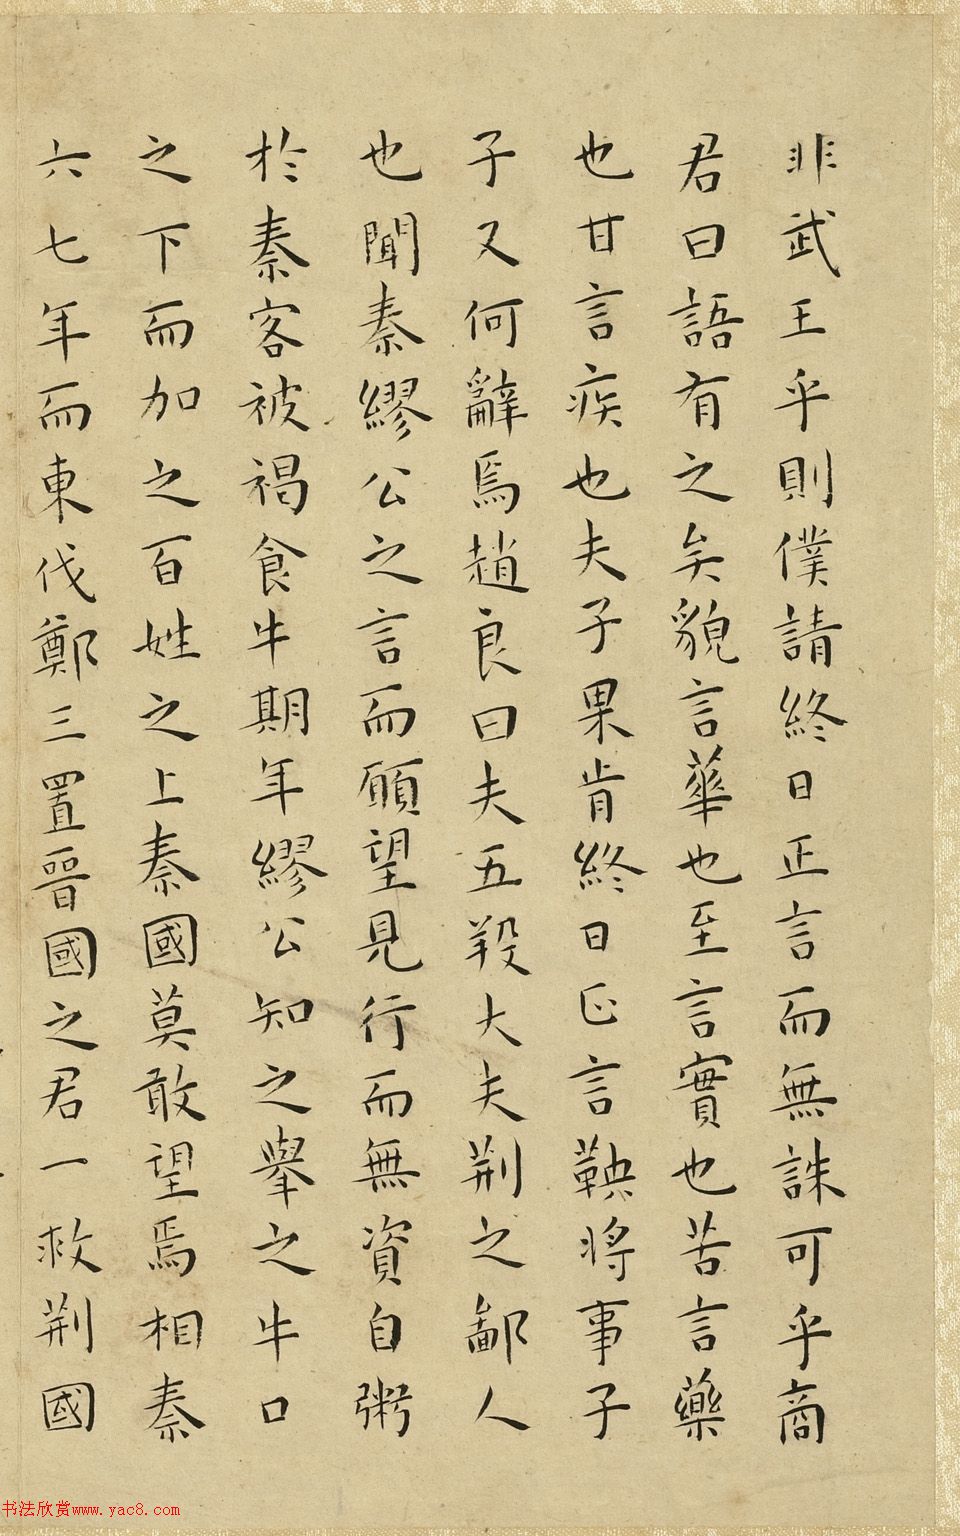 非武王乎則僕請終日正言而無誅可乎商
君曰語有之矣貌言華也至言實也苦言藥
也甘言疾也夫子果肯終日正言鞅將事子
子又何辭焉趙良曰夫五羖大夫荆之鄙人
也聞秦繆公之言而願望見行而無資自粥
於秦客被褐食牛期年繆公知之舉之牛口
之下而加之百姓之上秦國莫敢望焉相秦
六七年而東伐鄭三置晉國之君一救荆國
书法欣赏www.yac8.com